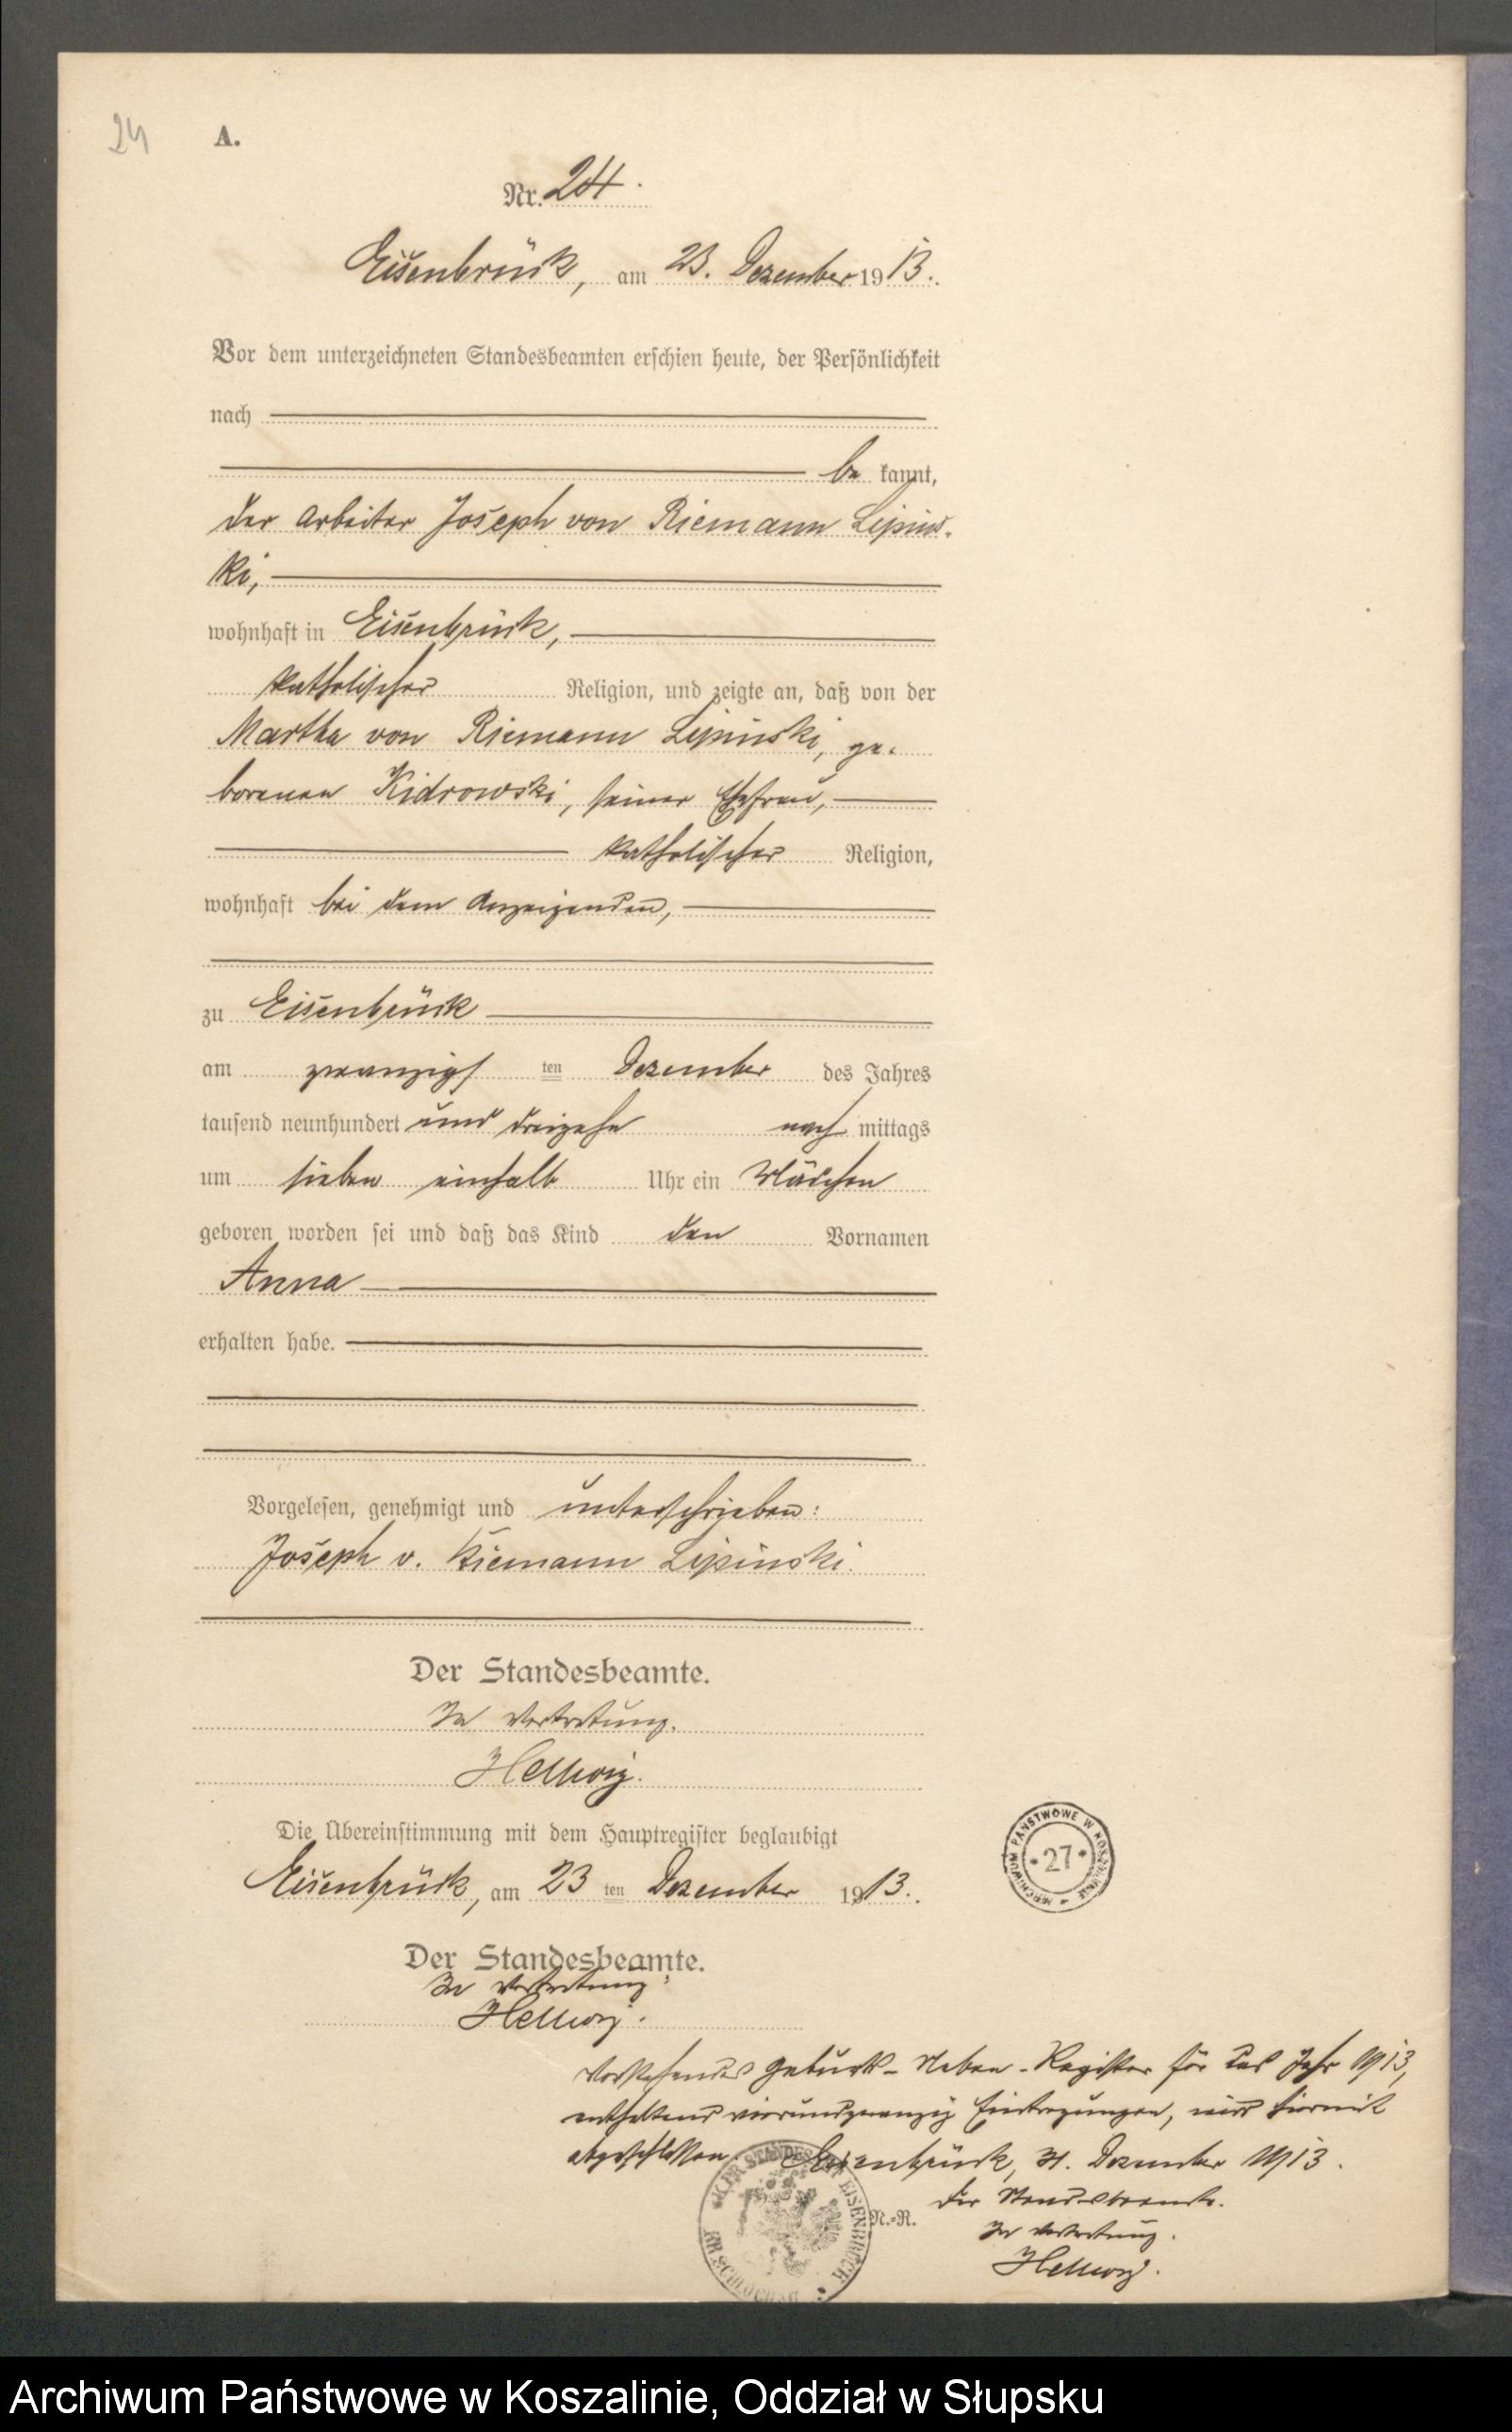 24
A.
Nr. 24.
Eisenbrück, am 23. Dezember 1913.
Vor dem unterzeichneten Standesbeamten erschien heute, der Persönlichkeit
nach
be kannt,
der Arbeiter Joseph von Riemann Lipins-
ki,
wohnhaft in Eisenbrück,
katholischer Religion, und zeigte an, daß von der
Martha von Riemann Lipinski, ge-
borenen Kidrowski, seiner Ehefrau,
katholischer Religion,
wohnhaft bei dem Anzeigenden,
zu Eisenbrück
am zwanzigs ten Dezember des Jahres
tausend neunhundert und dreizehn nach mittags
um sieben einhalb Uhr ein Mädchen
geboren worden sei und daß das Kind den Vornamen
Anna
erhalten habe.
Vorgelesen, genehmigt und unterschrieben:
Joseph v. Riemann Lipinski.
Der Standesbeamte.
In Vertretung.
Hellwig.
Die Übereinstimmung mit dem Hauptregister beglaubigt
Eisenbrück, am 23 ten Dezember 1913.
ARCHIWUM PAŃSTWOWE W KOSZALINIE
* 27 *
Der Standesbeamte.
In Vertretung:
Hellwig.
Vorstehendes Geburts-Neben-Register für das Jahr 1913,
enthaltend vierundzwanzig Eintragungen, wird hiermit
abgeschlossen. Eisenbrück, 31. Dezember 1913.
Der Standesbeamte.
N.-R.
In Vertretung.
Hellwig.
STANDESAMT EISENBRÜCK
KR. SCHLOCHAU
Archiwum Państwowe w Koszalinie, Oddział w Słupsku